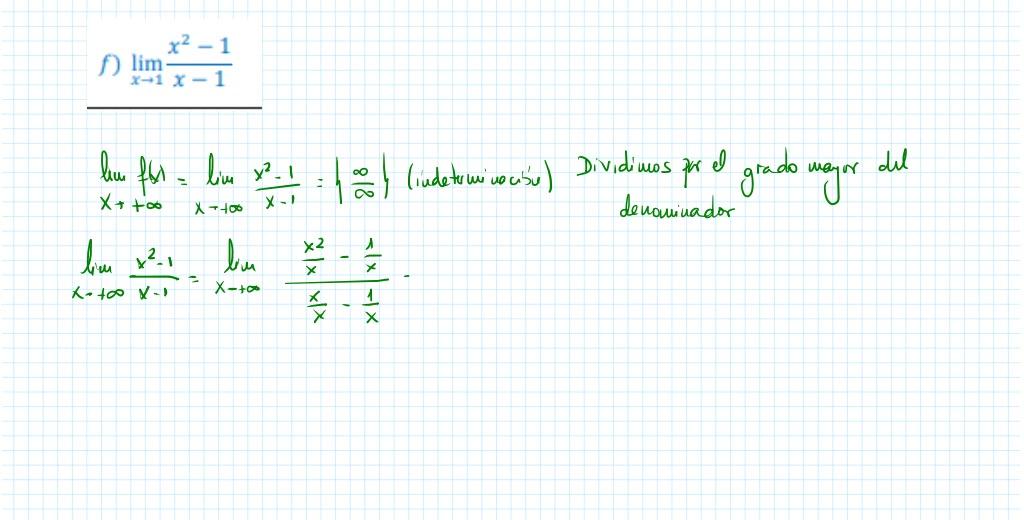 f) lim x→1 (x² − 1)/(x − 1)
lim x→+∞ f(x) = lim x→+∞ (x² - 1)/(x - 1) = { ∞/∞ } (indeterminación) Dividimos por el grado mayor del
denominador
lim x→+∞ (x² - 1)/(x - 1) = lim x→+∞ (x²/x - 1/x)/(x/x - 1/x) =